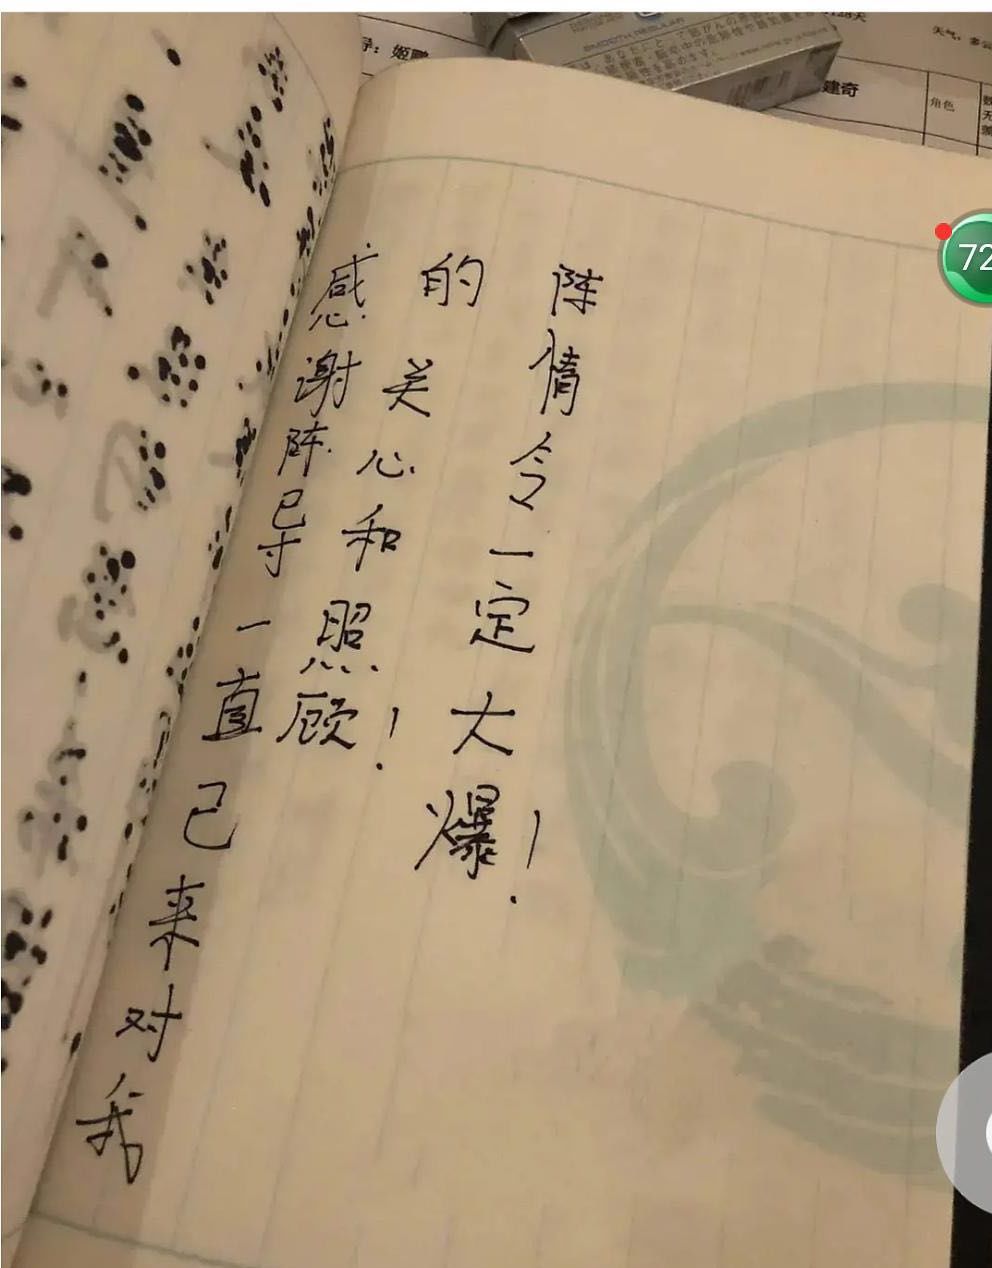 SMOOTH REGULAR
128天
导：姬鹏
建奇
角色
72
感谢陈导一直己来对我
的关心和照顾！
陈情令一定大爆！